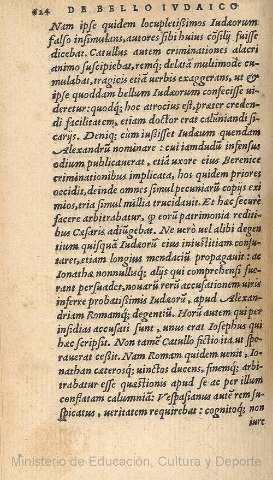 424 DE BELLO IVDAICO
Nam ipse quidem locupletissimos Iudæorum
falso insimulans, autores sibi huius cõsilij fuisse
dicebat. Catullus autem criminationes alacri
animo suscipiebat, remq; delatã multimode cu
mulabat, tragicis etiã uerbis exaggerans, ut &
ipse quoddam bellum Iudæorum confecisse ui-
deretur: quodq; hoc atrocius est, præter creden-
di facilitatem, etiam doctor erat calũniandi si-
carijs. Deniq; cùm iussisset Iudæum quendam
Alexandrũ nominare: cui iamdudũ infensus
odium publicauerat, etiã uxore eius Berenice
criminationibus implicata, hos quidem priores
occidit, deinde omnes simul pecuniarũ copijs exi
mios, tria simul millia trucidauit. Et hæc securè
facere arbitrabatur, ꝙ eorũ patrimonia rediti-
bus Cæsaris adiũgebat. Ne uerò uel alibi degen
tium quisquã Iudæorũ eius iniustitiam confu-
taret, etiam longius mendaciũ propagauit: ac
Ionathæ nonnullisq; alijs qui comprehensi fue-
rant persuadet, nouarũ rerũ accusationem uiris
inferre probatissimis Iudæorũ, apud Alexan-
driam Romamq; degentiũ. Horũ autem qui per
insidias accusati sunt, unus erat Iosephus qui
hæc scripsit. Non tamẽ Catullo fictio ita ut spe-
rauerat cessit. Nam Romam quidem uenit, Io-
nathan cæterosq; uinctos ducens, finemq; arbi-
trabatur esse quæstionis apud se ac per illum
conflatam calumniã: Vespasianus aũt rem su-
spicatus, ueritatem requirebat: cognitoq; non
iure
Ministerio de Educación, Cultura y Deporte